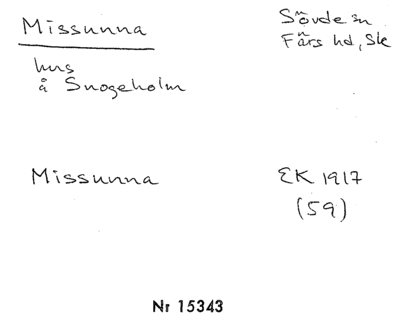 Missunna
Sövde sn
Färs hd, Sk
hus
å Snogeholm
Missunna
EK 1917
(59)
Nr 15343